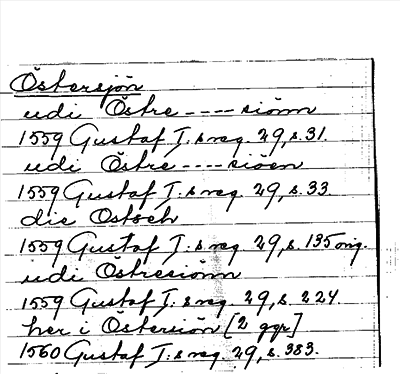 Östersjön
udi Östre ---- siönn
1559 Gustaf I:s reg. 29, s. 31.
udi Östre ---- siöen
1559 Gustaf I:s reg. 29, s. 33
die Ostseh
1559 Gustaf I:s reg. 29, s. 135 orig.
udi Östresiönn
1559 Gustaf I:s reg. 29, s. 224.
her i Östersiön [2 ggr]
1560 Gustaf I:s reg. 29, s. 383.